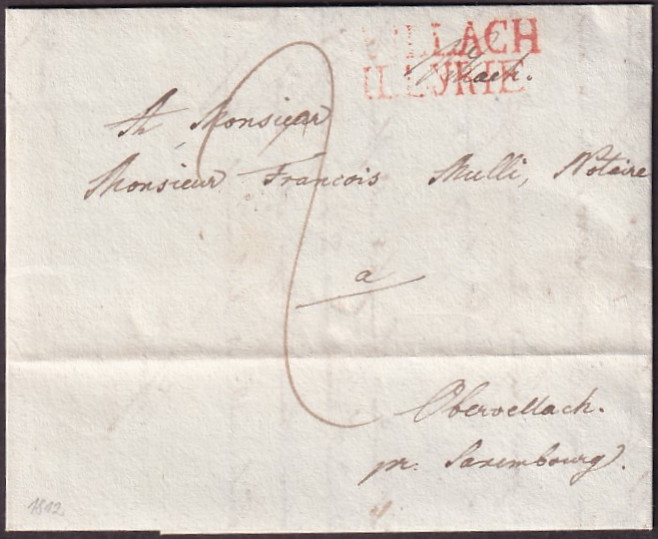 VILLACH
Villach.
ILLYRIE
A Monsieur
Monsieur Francois Mulli, Notaire
a
2
Obervellach.
pr. Saxembourg.
1812.